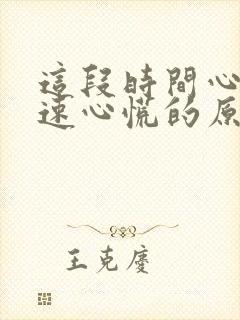 這段時間心
速心慌的原
王克慶